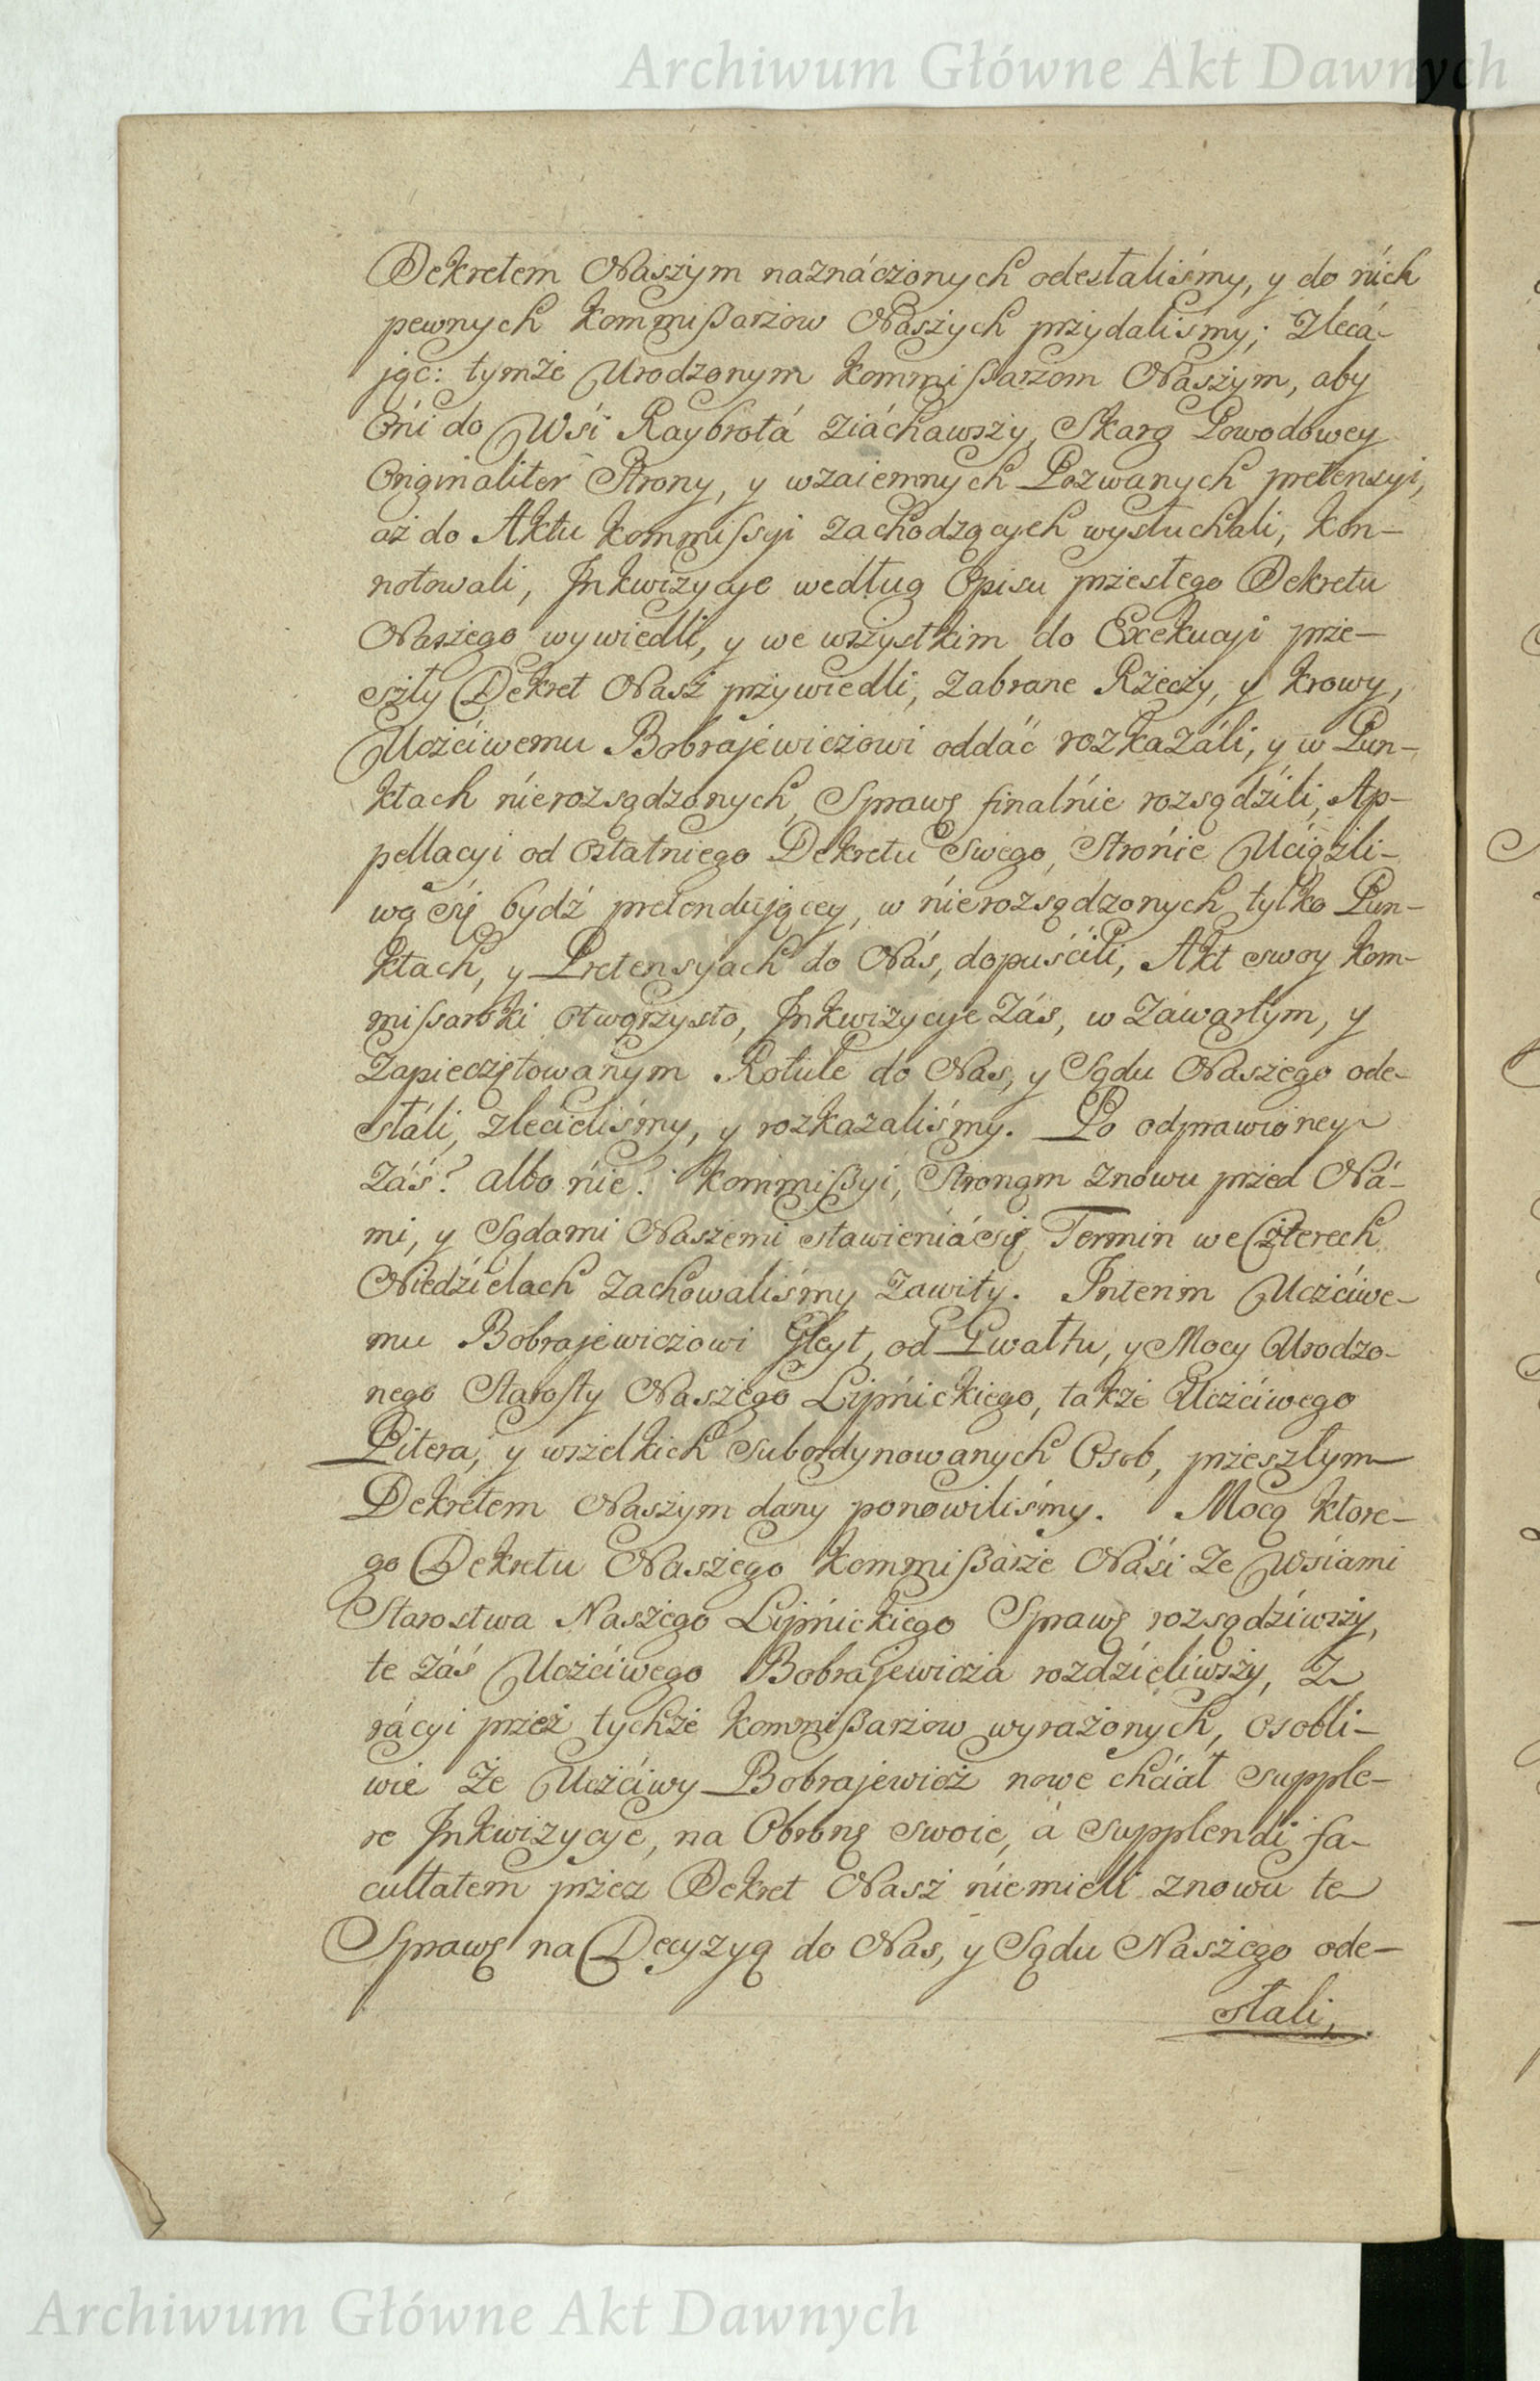 Archiwum Główne Akt Dawnych
Dekretem Naszym náznáczonych odesłaliśmy, y do nich
pewnych Kommißarzow Naszych przydaliśmy; Zlecá-
jąc: tymże Urodzonym Kommißarzom Naszym, aby
Oni do Wśi Raybrotá ziáchawszy, Skarg Powodowey
Originaliter Strony, y wzaiemnych Pozwanych pretensyi,
aż do Aktu Kommissyi zachodzących wysłuchali, kon-
notowali, Inkwizycye według Opisu przeszłego Dekretu
Naszego wywiedli, y we wszystkim do Exekucyi prze-
szły Dekret Nasz przywiedli, zabrane Rzeczy, y krowy,
Uczćiwemu Bobrajewiczowi oddáć rozkazáli, y w Pun-
ktach nierozsądzonych, Sprawę finalnie rozsądźili, Ap-
pellacyi od ostatniego Dekretu swego, Stronie Uciążli-
wą się bydź pretendującey, w nierozsądzonych tylko Pun-
ktach, y Pretensyach do Nás, dopuśćili, Akt swoy Kom-
missarski otworzysto, Inkwizycye Záś, w Záwartym, y
Zapieczętowanym Rotule do Nas, y Sądu Naszego ode-
słáli, zleciliśmy, y rozkazaliśmy. Po odprawioney
Záś? albo nie? Kommißyi, Stronom znowu przed Ná-
mi, y Sądami Naszemi stawieniá się Termin we Czterech
Niedźielach Zachowaliśmy Zawity. Interim Uczćiwe-
mu Bobrajewiczowi Gleyt, od Gwałtu, y Mocy Urodzo-
nego Starosty Naszego Lipnickiego, także Uczćiwego
Pitera, y wszelkich subordynowanych Osob, przeszłym
Dekretem Naszym dany ponowiliśmy. Mocą ktore-
go Dekretu Naszego Kommißarze Náśi ze Wsiami
Starostwa Naszego Lipnickiego Sprawę rozsądźiwszy,
te záś Uczćiwego Bobrajewicza rozdźieliwszy, Z
rácyi przez tychże Kommißarzow wyrażonych, osobli-
wie że Uczćiwy Bobrajewicz nowe chćiał supple-
re Inkwizycye, na Obronę swoie, á supplendi fa-
cultatem przez Dekret Nasz niemieli znowu te
Sprawę na Decyzyą do Nas, y Sądu Naszego ode-
słali,
Archiwum Główne Akt Dawnych